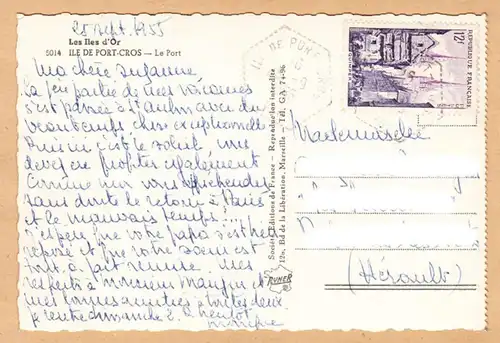 25 sept. 1955
Les Iles d'Or
5014 ILE DE PORT-CROS — Le Port
Ma chère Suzanne
La fin partie de mes vacances
s'est passée à St Aubin avec du
beau temps, chose exceptionnelle
ici c'est le soleil, vous
devez en profiter également
Comme moi vous appréhendez
sans doute le retour à Paris
et le mauvais temps!...
J'espère que votre papa s'est bien
reposé et que votre sœur est
tout à fait remise. Mes
respects à Monsieur et
mes bonnes amitiés à toutes deux.
Je rentre dimanche 2. A bientôt
Monique
Société Editions de France — Reproduction interdite
12a, Bd de la Libération, Marseille — Tél. GA 74-96
RUNER
ILE DE PORT
12f
REPUBLIQUE FRANÇAISE
QUIMPER
Mademoiselle
(Hérault)